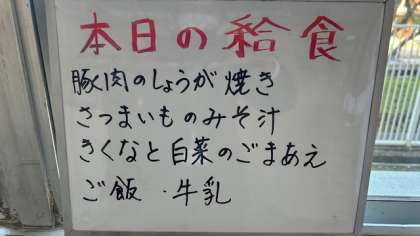 本日の給食
豚肉のしょうが焼き
さつまいものみそ汁
きくなと白菜のごまあえ
ご飯・牛乳